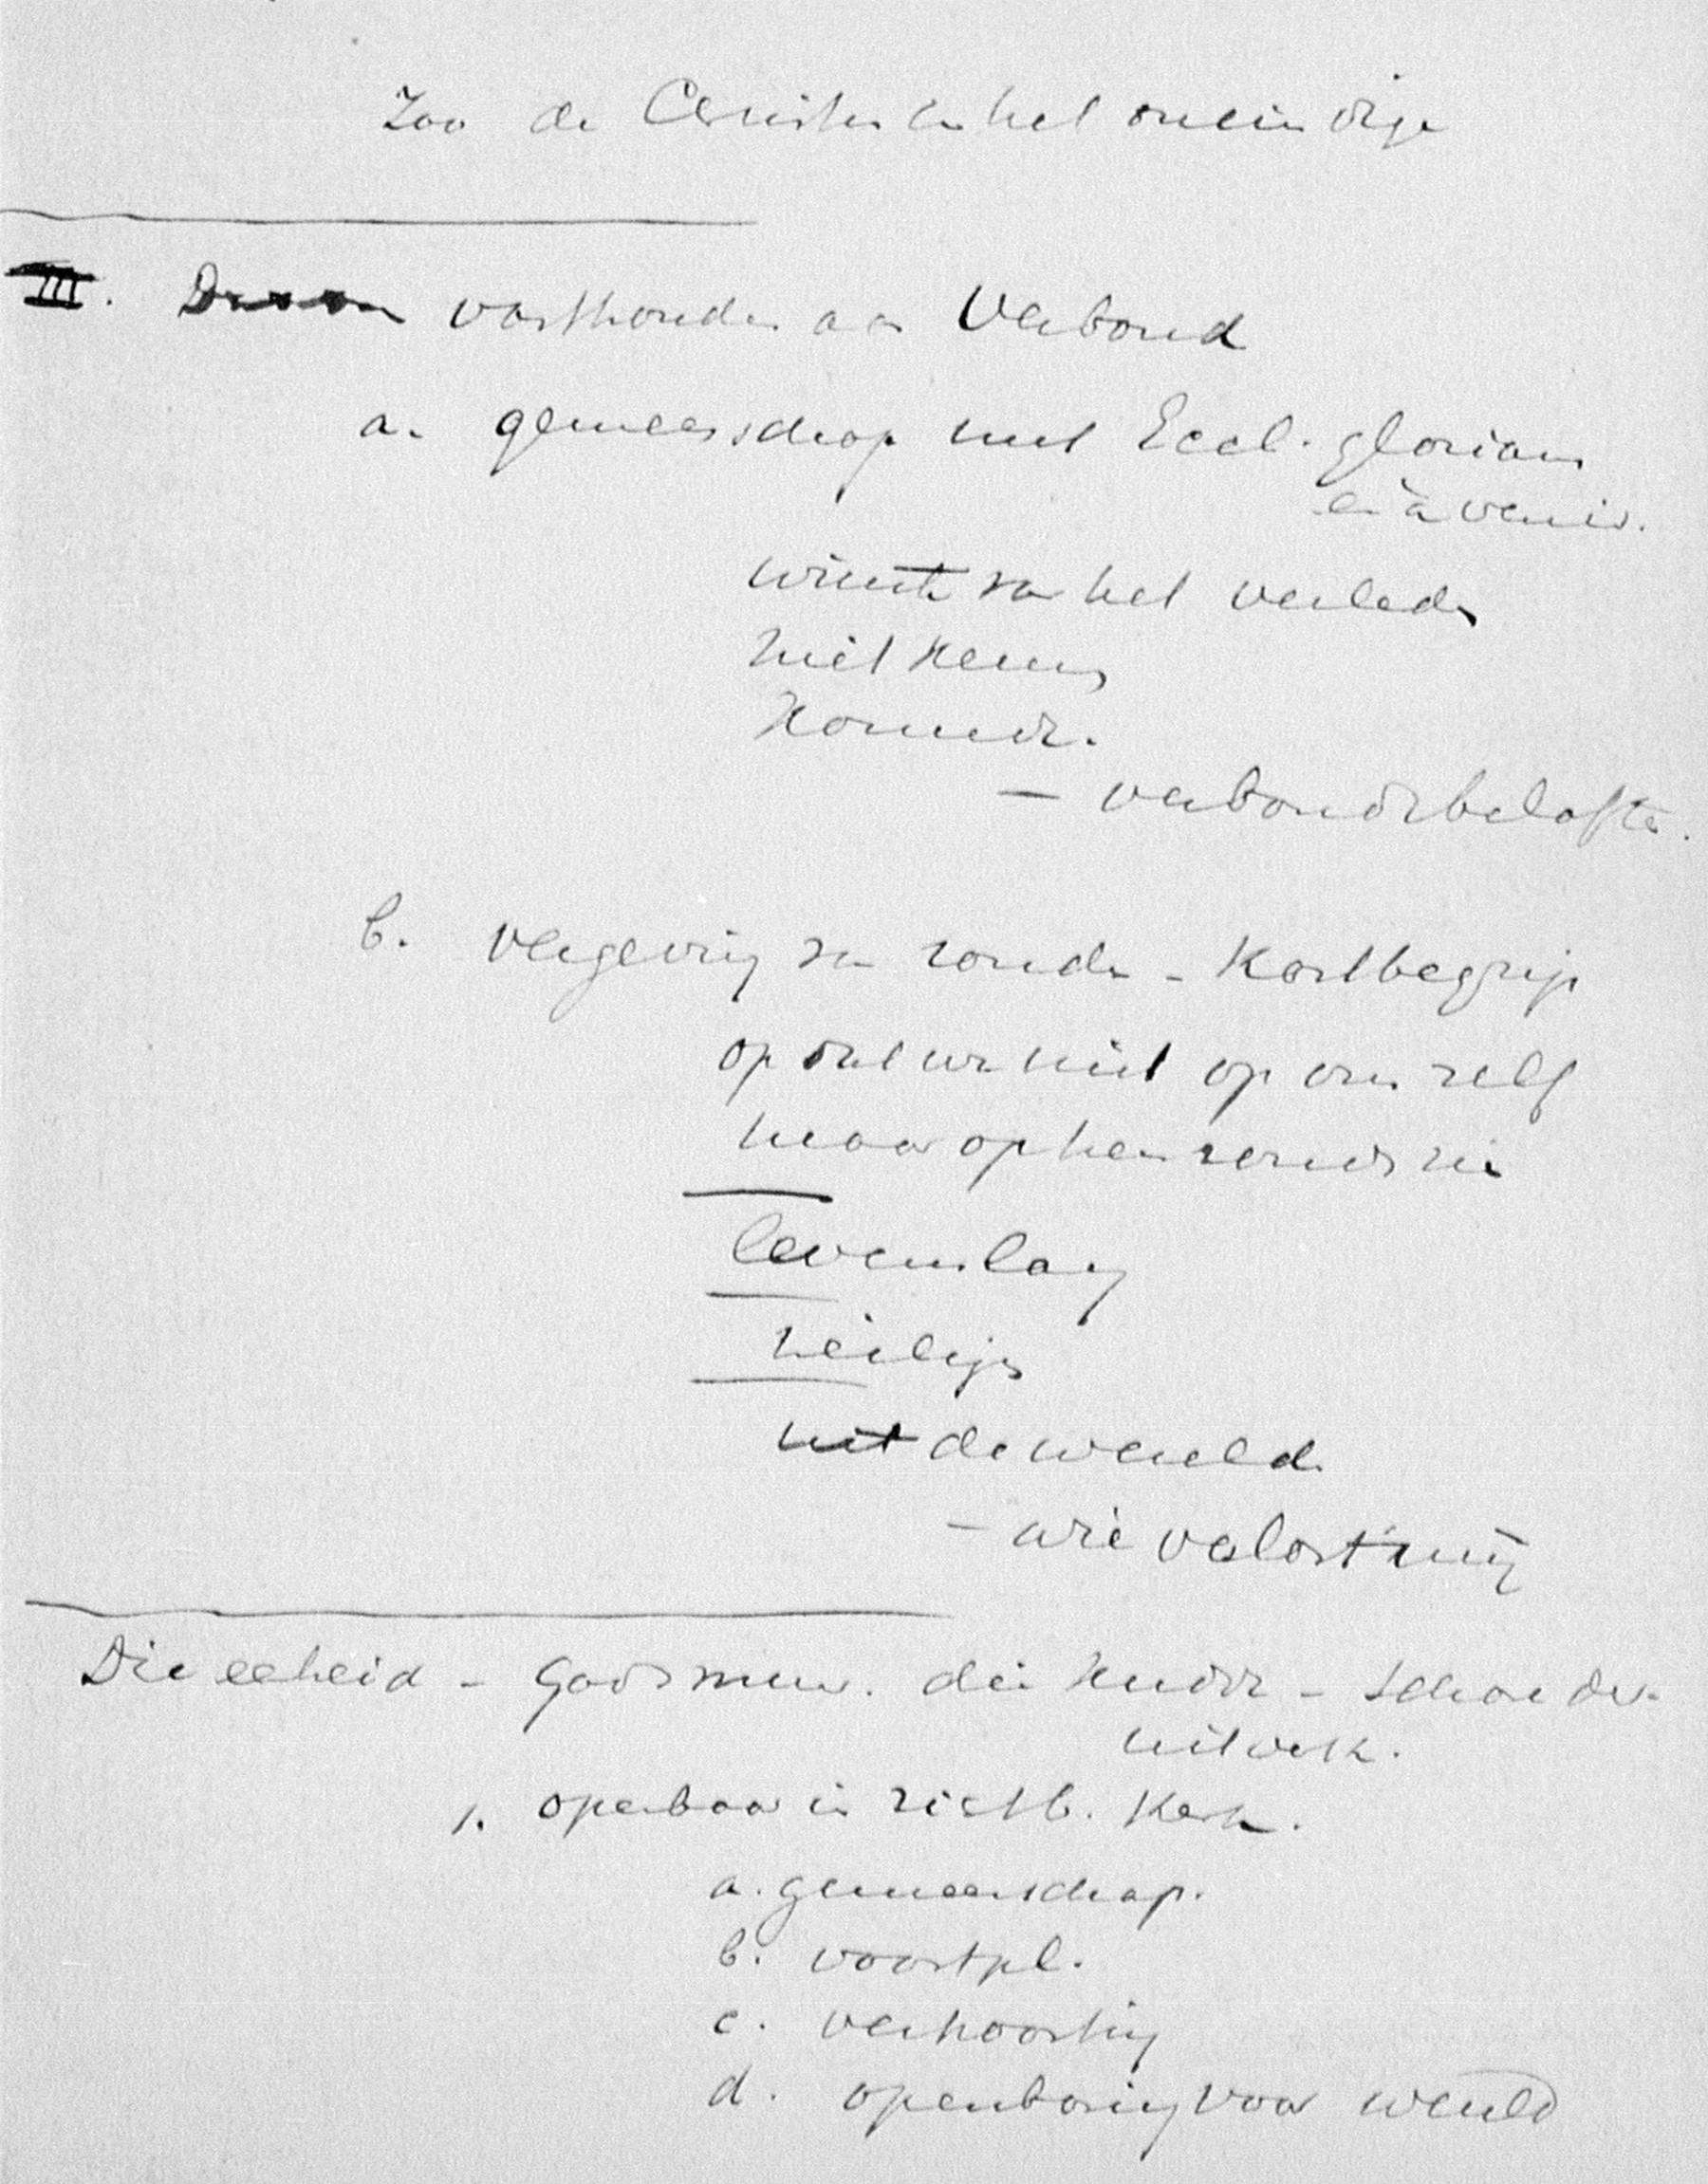 Zoo de Christen in het oneindige
III. vasthouden aan Verbond
a. gemeenschap met Eccl. glorians
en à venir.
van het verleden
niet kennen
- verbondsbelofte.
b. vergeving van zonden - Kortbegrip
opdat we niet op ons zelf
maar op hen zouden zien
levenslang
heiligen
uit de wereld
- wie verlost mij
Die eenheid - Gods mens. die
uitverk.
1. openbaar in zichtb. Kerk.
a. gemeenschap.
b. voortpl.
c. verhooring
d. openbaring voor wereld